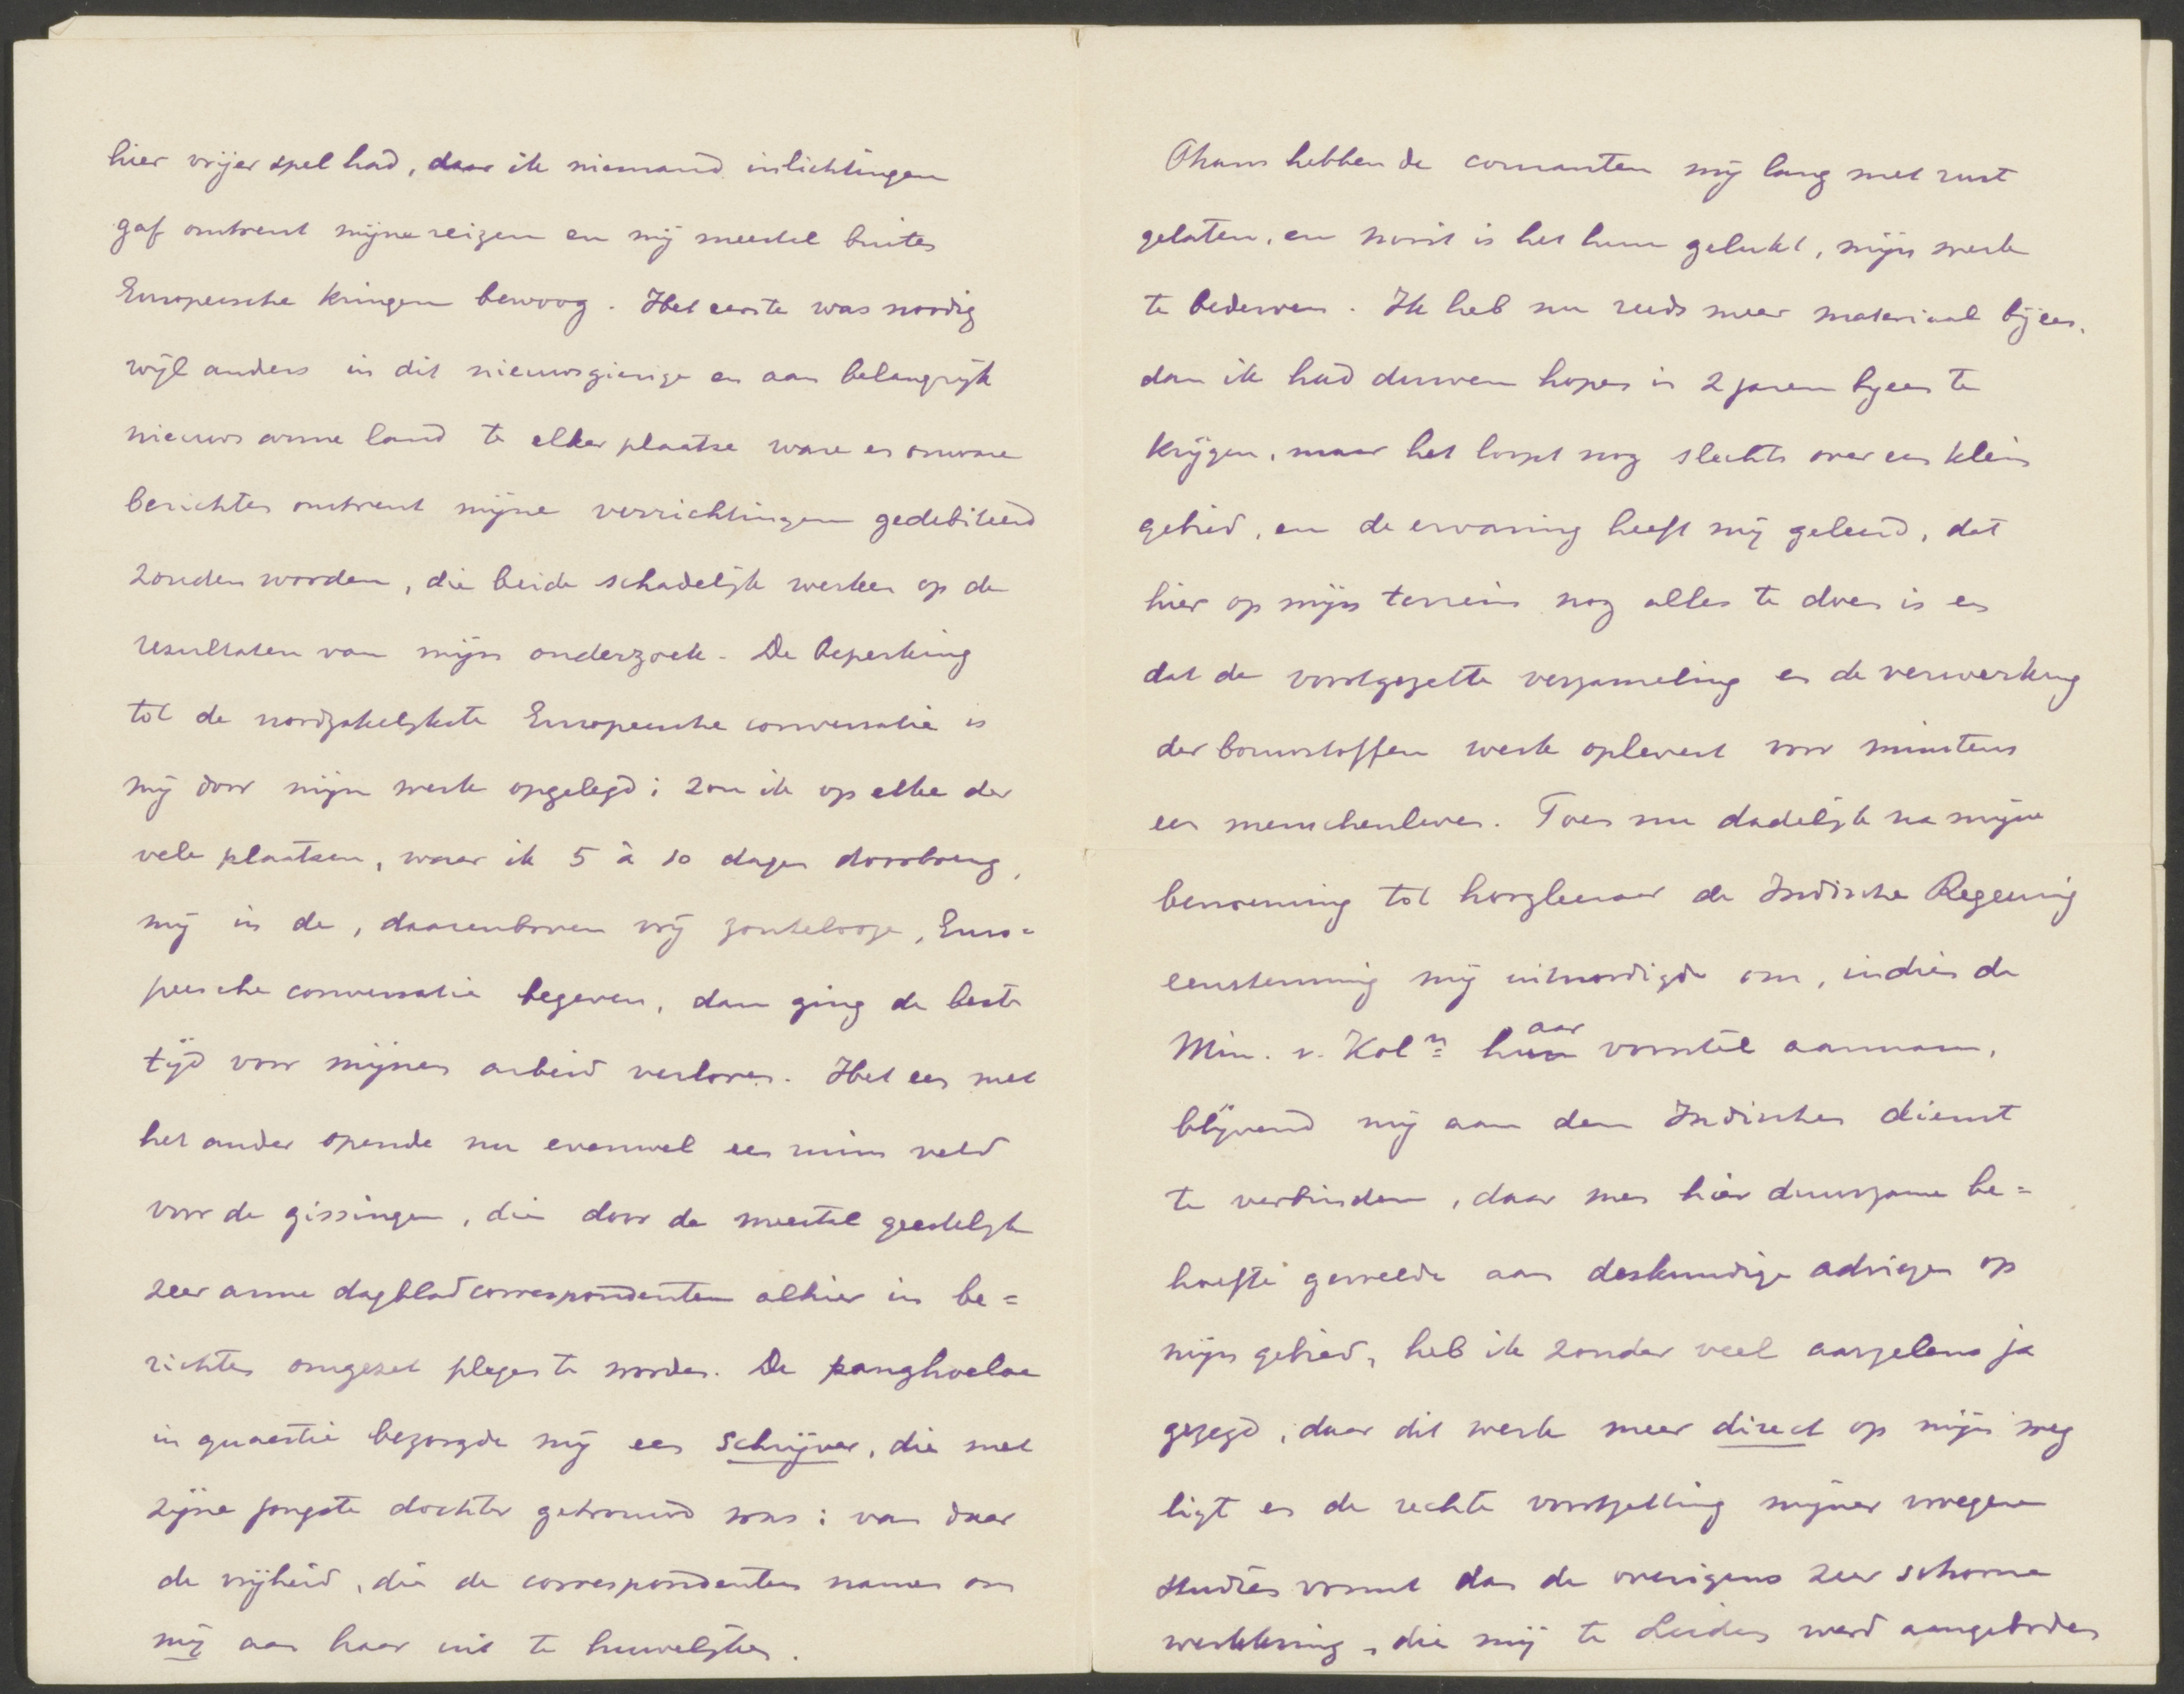 hier vrijer spel had, daar ik niemand inlichtingen
gaf omtrent mijne reizen en mij meestal buiten
Europeesche kringen bewoog. Het eerste was noodig
wijl anders in dit nieuwsgierige en aan belangrijk
nieuws arme land te elker plaatse ware en onware
berichten omtrent mijne verrichtingen gedebiteerd
zouden worden, die beide schadelijk werken op de
resultaten van mijn onderzoek. De beperking
tot de noodzakelijkste Europeesche conversatie is
mij door mijn werk opgelegd; zou ik op elke der
vele plaatsen, waar ik 5 à 10 dagen doorbreng,
mij in de, daarenboven vrij zoutelooze, Euro=
peesche conversatie begeven, dan ging de beste
tijd voor mijnen arbeid verloren. Het een met
het ander opende nu evenwel een ruim veld
voor de gissingen, die door de meestal geestelijk
zeer arme dagbladcorrespondenten alhier in be=
richten omgezet plegen te worden. De panghoeloe
in quaestie bezorgde mij een schrijver, die met
zijne jongste dochter getrouwd was: van daar
de vrijheid, die de correspondenten namen om
mij aan haar uit te huwelijken.
Thans hebben de couranten mij lang met rust
gelaten, en nooit is het hun gelukt, mijn werk
te bederven. Ik heb nu reeds meer materiaal bijeen,
dan ik had durven hopen in 2 jaren bijeen te
krijgen, maar het loopt nog slechts over een klein
gebied, en de ervaring heeft mij geleerd, dat
hier op mijn terrein nog alles te doen is en
dat de voortgezette verzameling en de verwerking
der bouwstoffen werk oplevert voor minstens
een menschenleven. Toen nu dadelijk na mijne
benoeming tot hoogleeraar de Indische Regeering
eenstemmig mij uitnoodigde om, indien de
Min. v. Kol.n haar voorstel aannam,
blijvend mij aan den Indischen dienst
te verbinden, daar men hier duurzame be=
hoefte gevoelde aan deskundige adviezen op
mijn gebied, heb ik zonder veel aarzelens ja
gezegd, daar dit werk meer direct op mijn weg
ligt en de rechte voortzetting mijner vroegere
studiën vormt dan de overigens zeer schoone
werkkring, die mij te Leiden werd aangeboden